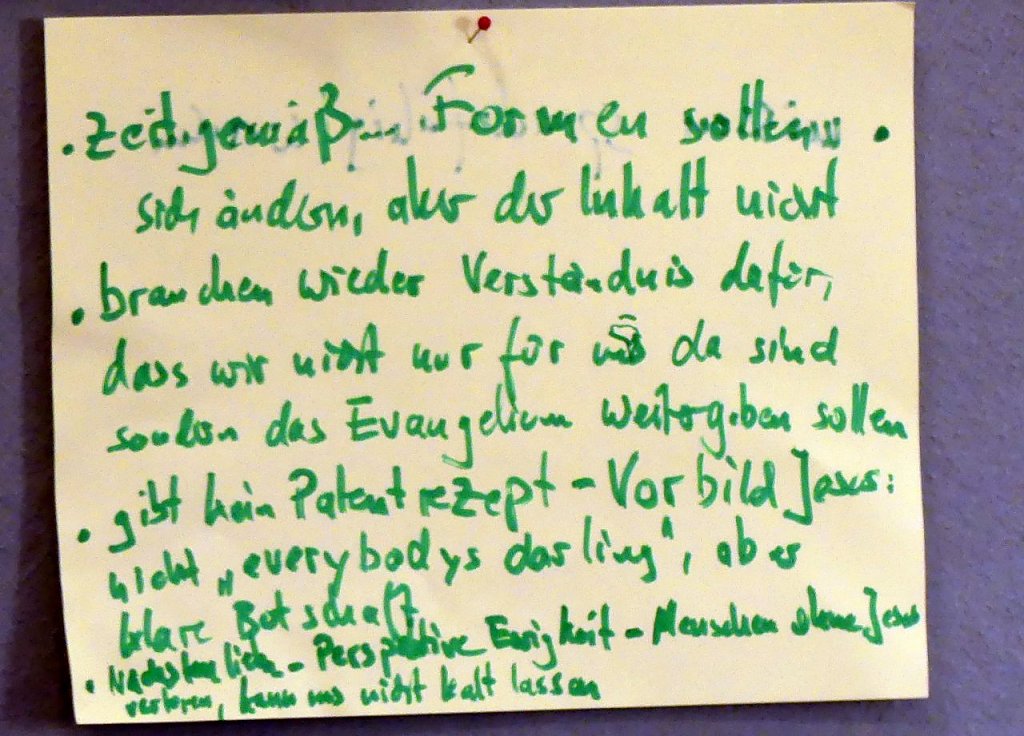 • zeitgemäß. Formen sollten •
sich ändern, aber der Inhalt nicht
• brauchen wieder Verständnis dafür,
dass wir nicht nur für uns da sind
sondern das Evangelium weitergeben sollen
• gibt kein Patentrezept - Vorbild Jesus:
nicht „everybodys darling", aber
klare Botschaft
• - Perspektive Ewigkeit - Menschen ohne Jesus
verloren, kann uns nicht kalt lassen